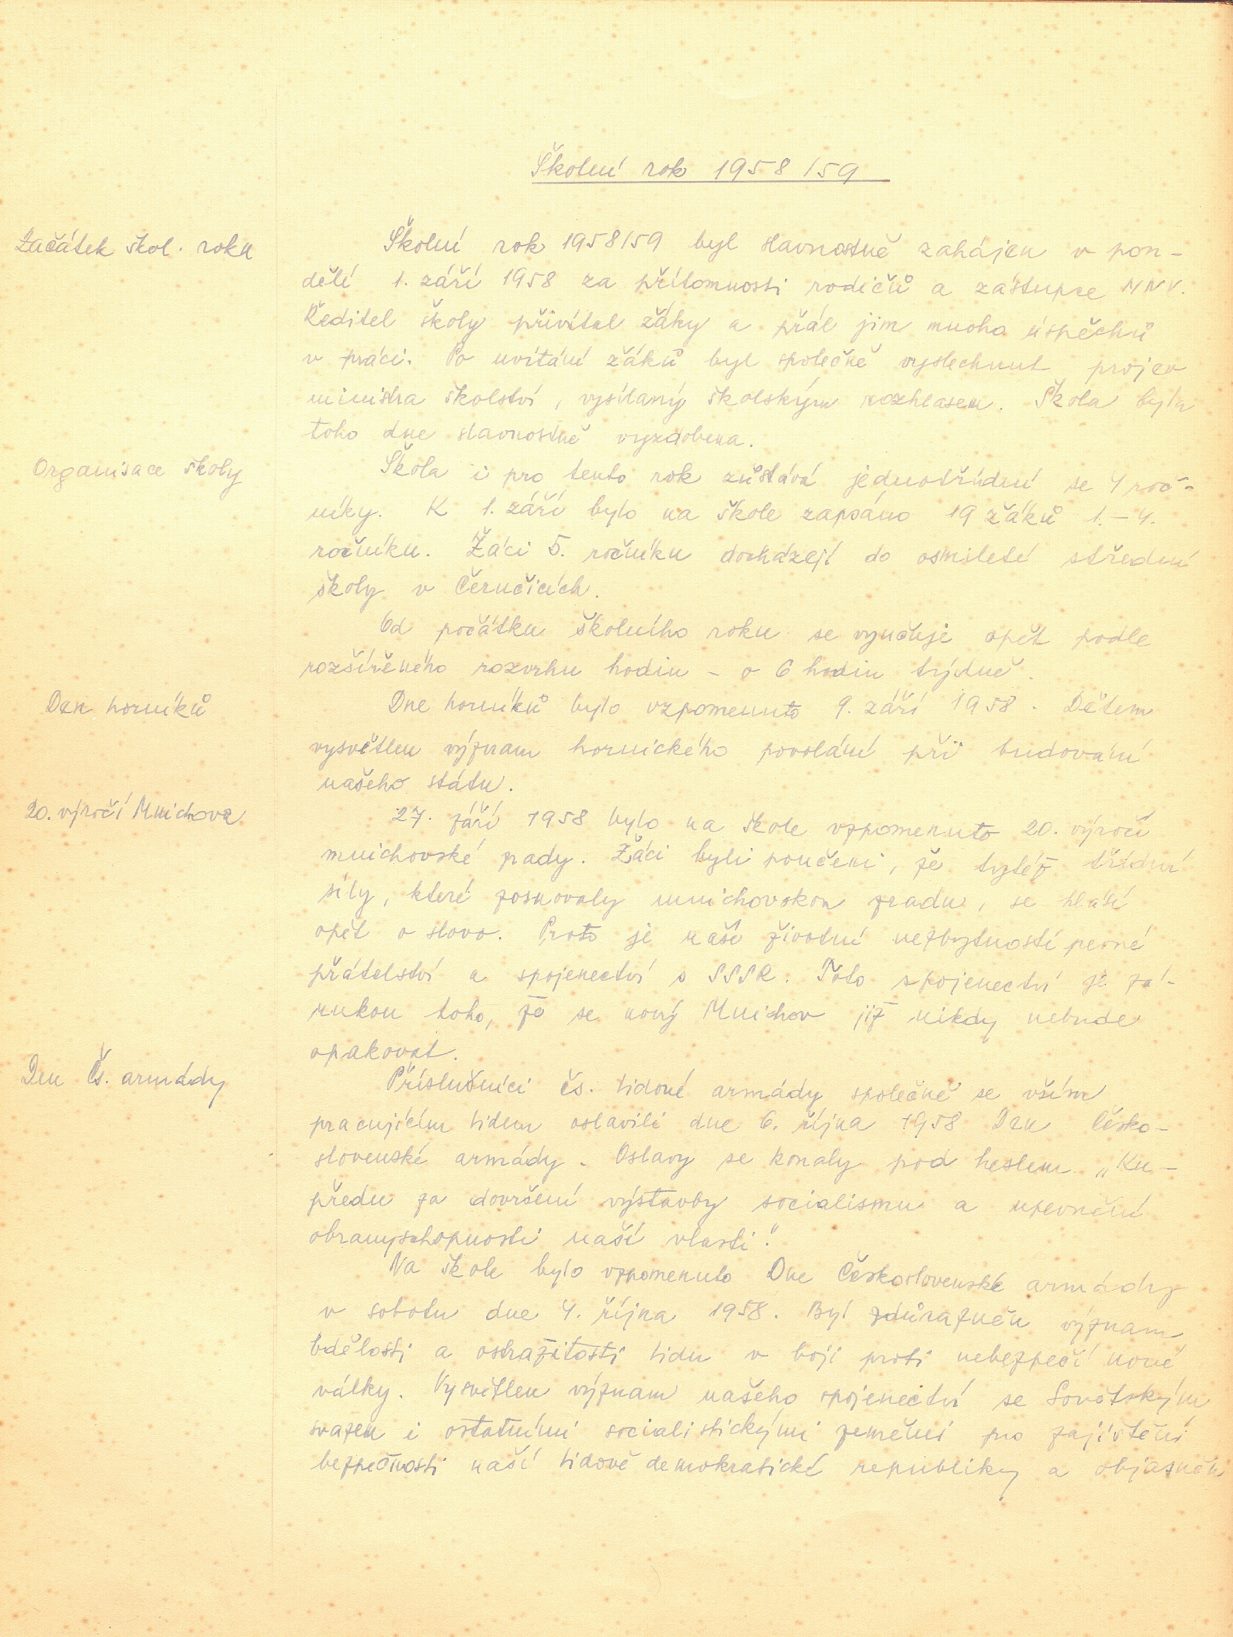 Školní rok 1958/59
Začátek škol. roku
Školní rok 1958/59 byl slavnostně zahájen v pon-
dělí 1. září 1958 za přítomnosti rodičů a zástupce MNV.
Ředitel školy přivítal žáky a přál jim mnoho úspěchů
v práci. Po uvítání žáků byl společně vyslechnut projev
ministra školství, vysílaný školským rozhlasem. Škola byla
toho dne slavnostně vyzdobena.
Organisace školy
Škola i pro tento rok zůstává jednotřídní se 4 roč-
níky. K 1. září bylo na škole zapsáno 19 žáků 1.-4.
ročníku. Žáci 5. ročníku docházejí do osmileté střední
školy v Černčicích.
Od počátku školního roku se vyučuje opět podle
rozšířeného rozvrhu hodin - o 6 hodin týdně.
Den horníků
Dne horníků bylo vzpomenuto 9. září 1958. Dětem
vysvětlen význam hornického povolání při budování
našeho státu.
20. výročí Mnichova
27. září 1958 bylo na škole vzpomenuto 20. výročí
mnichovské zrady. Žáci byli poučeni, že tytéž třídní
síly, které zosnovaly mnichovskou zradu, se hlásí
opět o slovo. Proto je naší životní nezbytností pevné
přátelství a spojenectví s SSSR. Toto spojenectví je zá-
rukou toho, že se nový Mnichov již nikdy nebude
opakovat.
Den Čs. armády
Příslušníci čs. lidové armády společně se vším
pracujícím lidem oslavili dne 6. října 1958 Den Česko-
slovenské armády. Oslavy se konaly pod heslem „Ku-
předu za dovršení výstavby socialismu a upevnění
obranyschopnosti naší vlasti."
Na škole bylo vzpomenuto Dne Československé armády
v sobotu dne 4. října 1958. Byl zdůrazněn význam
bdělosti a ostražitosti lidu v boji proti nebezpečí nové
války. Vysvětlen význam našeho spojenectví se Sovětským
svazem i ostatními socialistickými zeměmi pro zajištění
bezpečnosti naší lidově demokratické republiky a objasněn